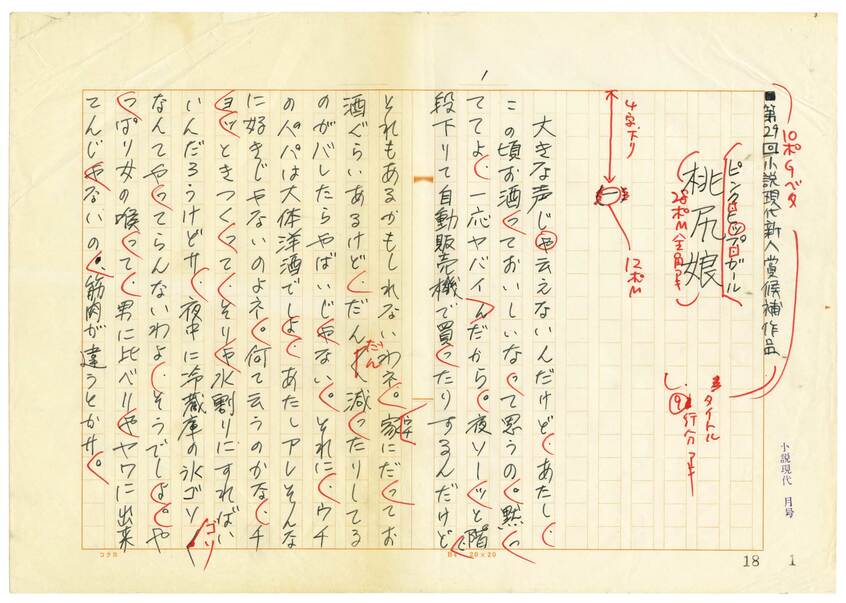 10ポGベタ
■第29回小説現代新人賞候補作品
ピンクヒップガール
桃尻娘
28ポM全角アキ
4字下り
一
12ポM
タイトル
9行分アキ
小説現代 月号
1
18
大きな声じゃ云えないんだけど、あたし、
この頃お酒っておいしいなって思うの。黙っ
ててよ、一応ヤバイんだから。夜ソーッと階
段下りて自動販売機で買ったりするんだけど、
それもあるかもしれないわネ。家にだってお
ウチ
酒ぐらいあるけど、だんだん減ったりしてる
だん
のがバレたらやばいじゃない。それに、ウチ
のパパは大体洋酒でしょ、あたしアレそんな
に好きじゃないのよネ。何て云うのかな、チ
ョッときつくって、そりゃ水割りにすればい
いんだろうけどサ、夜中に冷蔵庫の氷ゴソゴソ
ゴソ
なんてやってらんないわよ、そうでしょ。や
っぱり女の喉って、男に比べりゃヤワに出来
てんじゃないの、筋肉が違うとかサ。
コクヨ
20×20